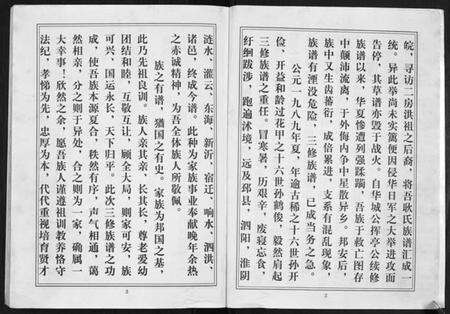 皖，寻访二房洪祖之后裔，将吾族氏族谱汇成一
统。异此举尚未实施便因侵华日军之大举进攻而
告停，其草谱亦毁于战火。自华城公挥亭公续修
族谱以来，华夏惨遭列强蹂躏，吾族于救亡图存
中颠沛流离，于外侮内争中星散异乡。邦安后，
族中又生齿蕃衍，成倍累进，支系有混乱现象，
族谱有湮没危险，三修族谱，已成当务之急。
公元一九八九年夏，年逾古稀之十六世孙开
俭、开益和龄过花甲之十六世孙鹤俊，毅然肩起
三修族谱之重任。冒寒暑，历艰辛，废寝忘食，
纡细跋涉，跑遍沭境，远及邳县，泗阳，淮阴
2
涟水，灌云，东海，新沂，宿迁，响水，泗洪，
诸邑，终成今谱。此种为家族事业奉献晚年余热
之赤诚精神，为吾全体族人所敬佩。
族之有谱，犹国之有史。家族为邦国之基，
此乃先祖良训。族人亲其亲，长其长，尊老爱幼
团结和睦，互敬互让，顾全大局，则家可安，族
可兴，国运永长，天下归平。此次三修族谱之功
成，使吾族本源夏合，秩然有序，声气相通，蔼
然相亲，分之则于异处，合之则为一家，确属一
大幸事！欣然之余，愿吾族人谨遵祖训教养恪守
法纪，孝悌为先，忠厚为本，代代重视培育贤才
3